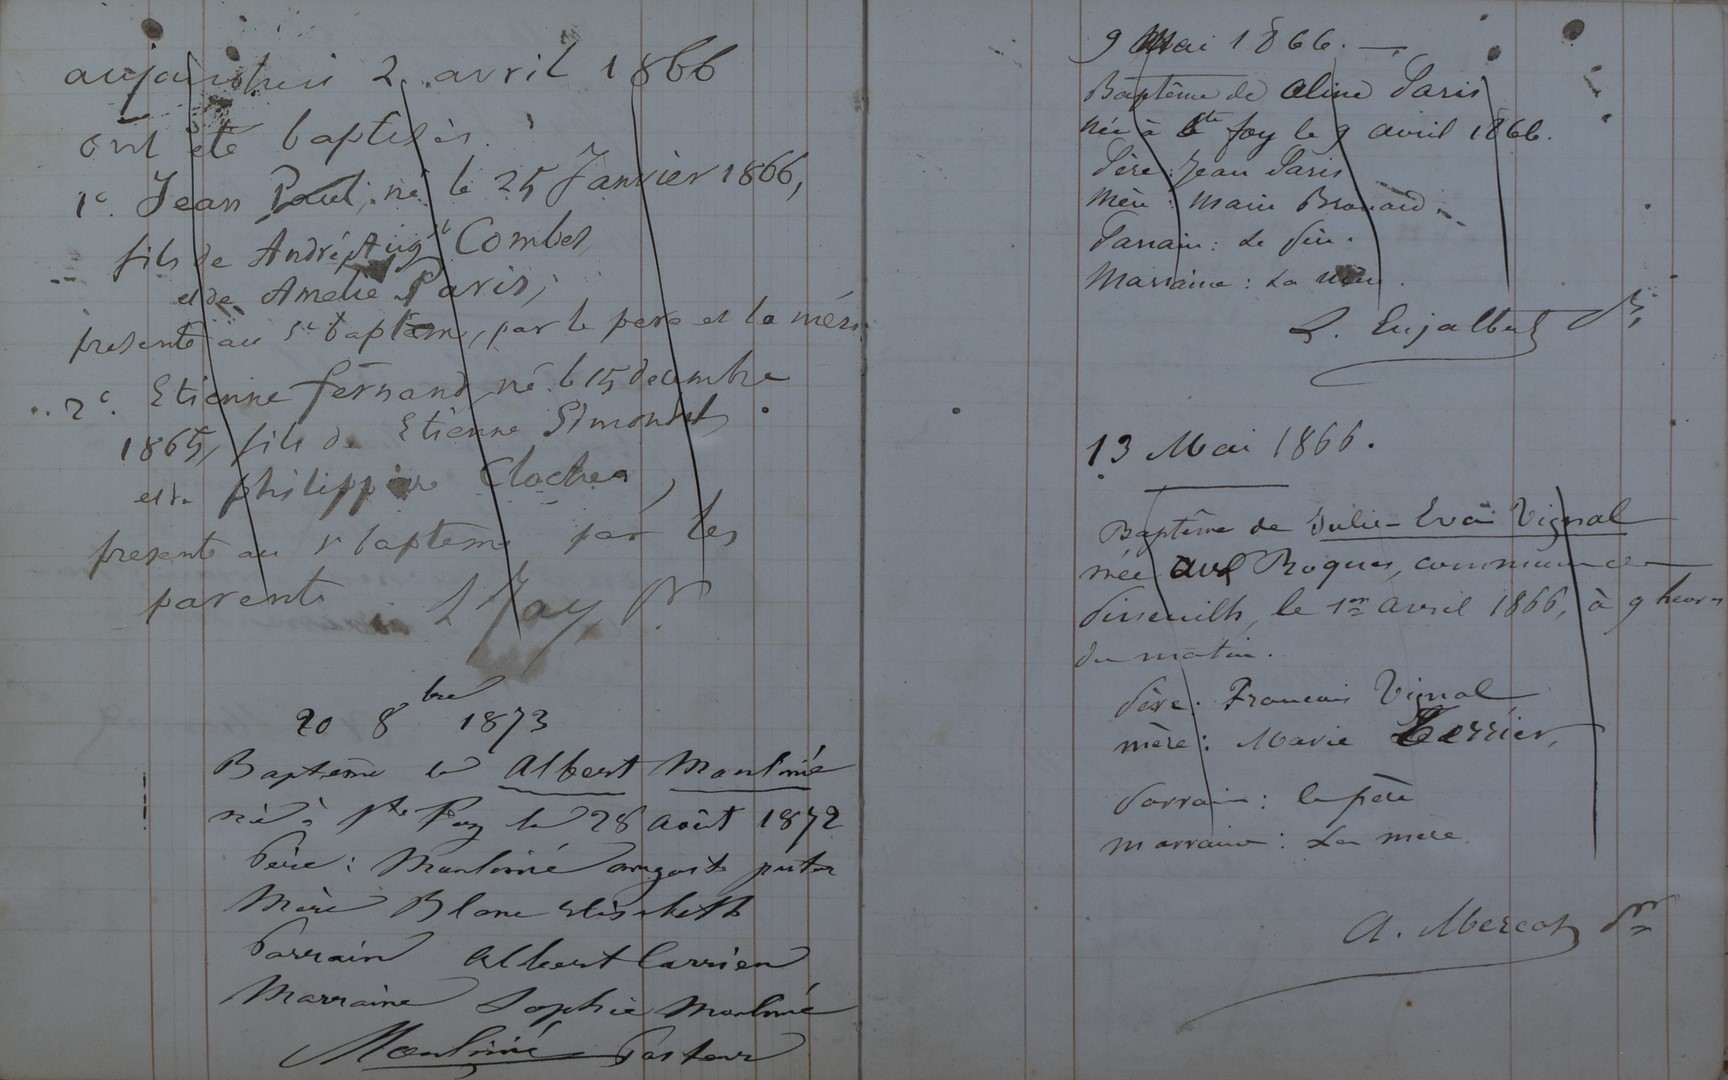 aujourdhui 2 avril 1866
ont été baptisés.
1º. Jean Paul, né le 25 Janvier 1866,
fils de André Augte Combes
et de Amelie Paris,
presenté au St bapteme, par le pere et la mère.
2º. Etienne fernand, né le 15 decembre
1865, fils de Etienne Simonet
et de philippine Cloches,
presenté au St bapteme par les
parents L Jay, Pr
20 8bre 1873
Baptême de Albert Moulinié
né à Ste Foy le 28 Août 1872
Père : Moulinié august pasteur
Mère Blanc Elisabeth
Parrain Albert Carrien
Marraine Sophie Moulinié
Moulinié Pasteur
9 Mai 1866. —
Baptême de Aline Paris
née à Ste foy le 9 avril 1866.
Père : Jean Paris
Mère : Marie Brouard.
Parrain : Le père.
Marraine : La mère.
L. Enjalbert Pr
13 Mai 1866.
Baptême de Julie-Eva Vignal
née aux Roques, commune de
Pineuilh, le 1er avril 1866, à 9 heures
du matin.
Père : Francois Vignal
mère : Marie Terrier,
Parrain : le père
marraine : La mere
A. Mercat Pr